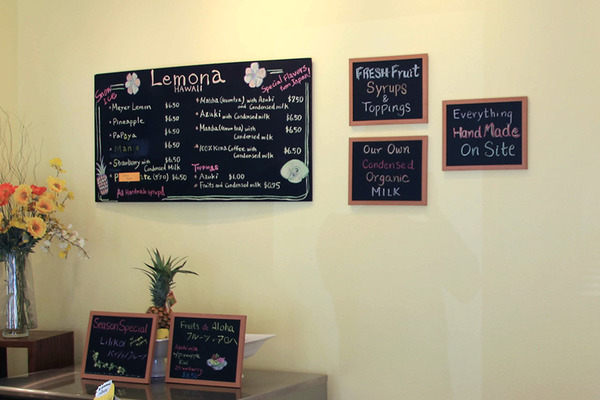 Lemona
HAWAII
Snow
ICE
Special Flavors
from Japan!
• Meyer Lemon $6.50
• Pineapple $6.50
• Papaya $6.50
$6.50
• Strawberry with
Condensed Milk $6.50
$6.50
All Handmade syrups!
with Azuki
and Condensed milk $7.50
• Azuki with Condensed milk $6.50
with
Condensed milk $6.50
Kona Coffee with
Condensed milk $6.50
Toppings
• Azuki $1.00
• Fruits and Condensed milk $0.75
FRESH Fruit
Syrups
&
Toppings
Our Own
Condensed
Organic
MILK
Everything
HandMade
On Site
Season Special
Lilikoi
Fruits & Aloha
フルーツ・アロハ
w/pineapple
Kiwi
Strawberry